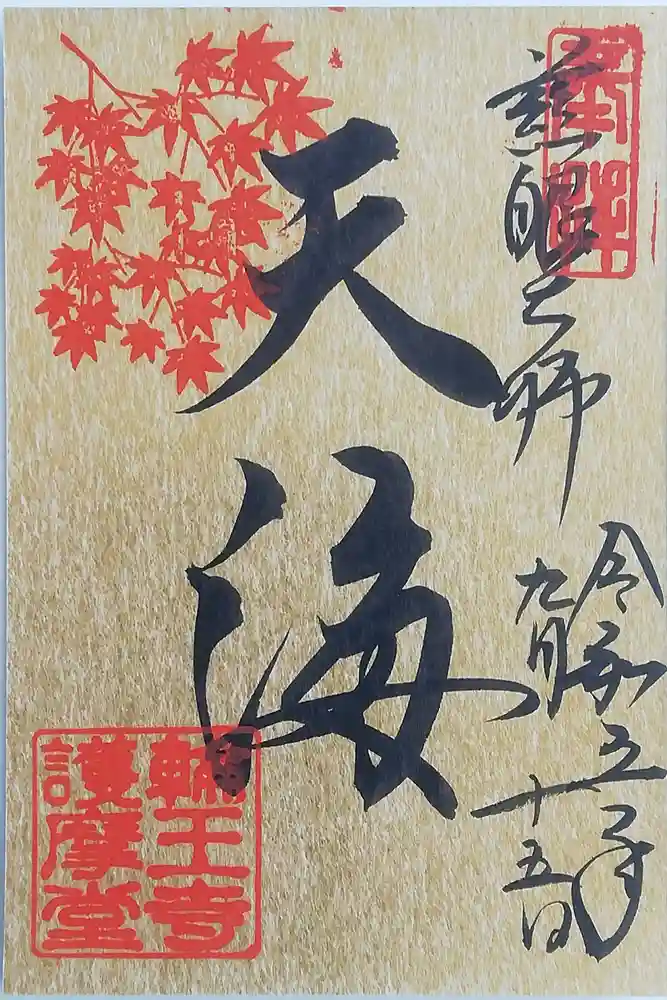 奉拝
慈眼大師
令和五年
九月
十五日
天海
輪王寺
護摩堂